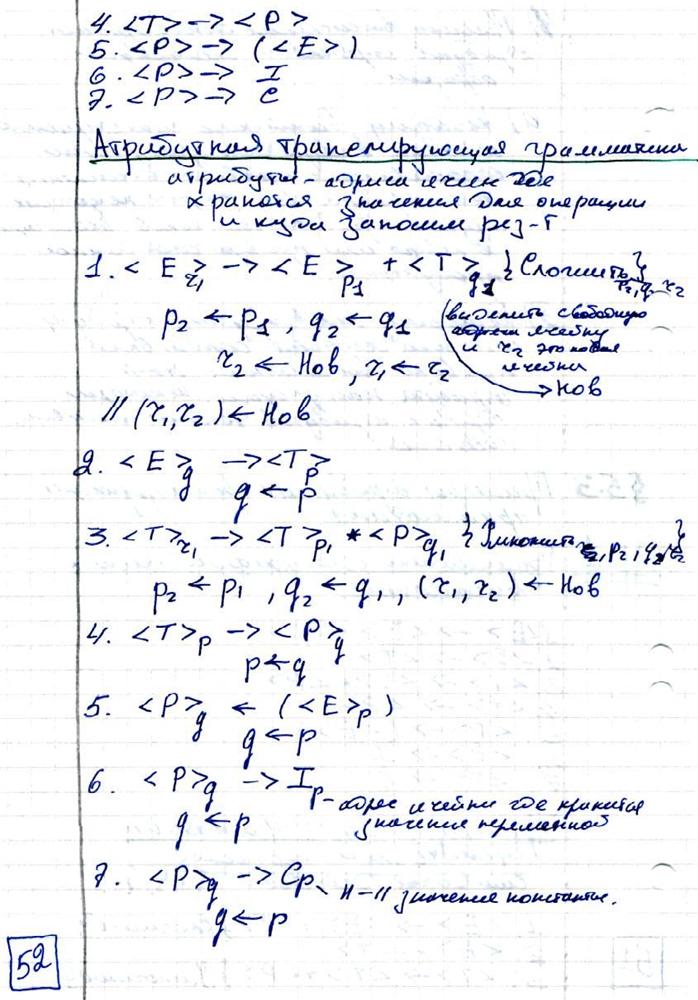 4. <T> -> <P>
5. <P> -> (<E>)
6. <P> -> I
7. <P> -> C
Атрибутная транслирующая грамматика
атрибуты - адреса ячеек где
хранятся значения для операции
и куда запишем рез-т
1. <E>r1 -> <E>p1 + <T>q1 {Сложить}p2,q2,r2
p2 ← p1, q2 ← q1
r2 ← Нов, r1 ← r2
выделить свободную
ячейку
и r2 это новая
ячейка
→ Нов
// (r1, r2) ← Нов
2. <E>q -> <T>p
q ← p
3. <T>r1 -> <T>p1 * <P>q1 {Умножить p2, q2, r2}
p2 ← p1, q2 ← q1, (r1, r2) ← Нов
4. <T>p -> <P>q
p ← q
5. <P>q ← (<E>p)
q ← p
6. <P>q -> Ip - адрес ячейки где хранится
значение переменной
q ← p
7. <P>q -> Cp - н - // значение константы.
q ← p
52